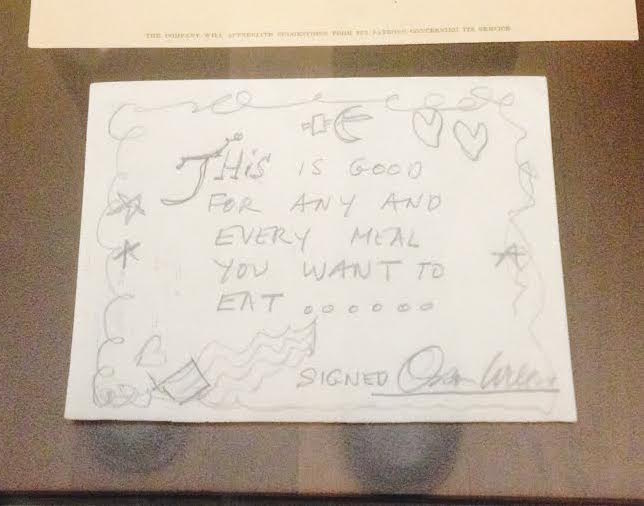 THE COMPANY WILL APPRECIATE SUGGESTIONS FROM ITS PATRONS CONCERNING ITS SERVICE
THiS IS GOOD
FOR ANY AND
EVERY MEAL
YOU WANT TO
EAT ......
SIGNED